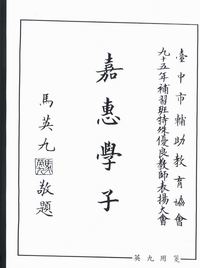 臺中市輔助教育協會
九十五年補習班特殊優良教師表揚大會
嘉惠學子
馬英九
敬題
英九用箋